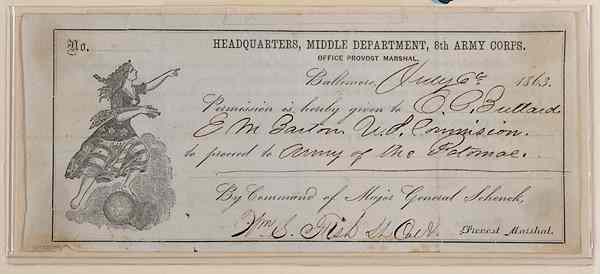 No.
HEADQUARTERS, MIDDLE DEPARTMENT, 8th ARMY CORPS.
OFFICE PROVOST MARSHAL.
Baltimore, July 6th 1863.
Permission is hereby given to C. C. Bullard
E M Barton U. S. Commission.
to proceed to Army of the Potomac.
By Command of Major General Schenck,
Wm S. Fish Lt Col &
Provost Marshal.